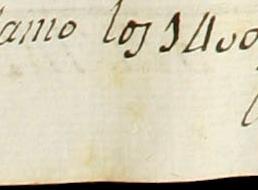 lamo los 1400